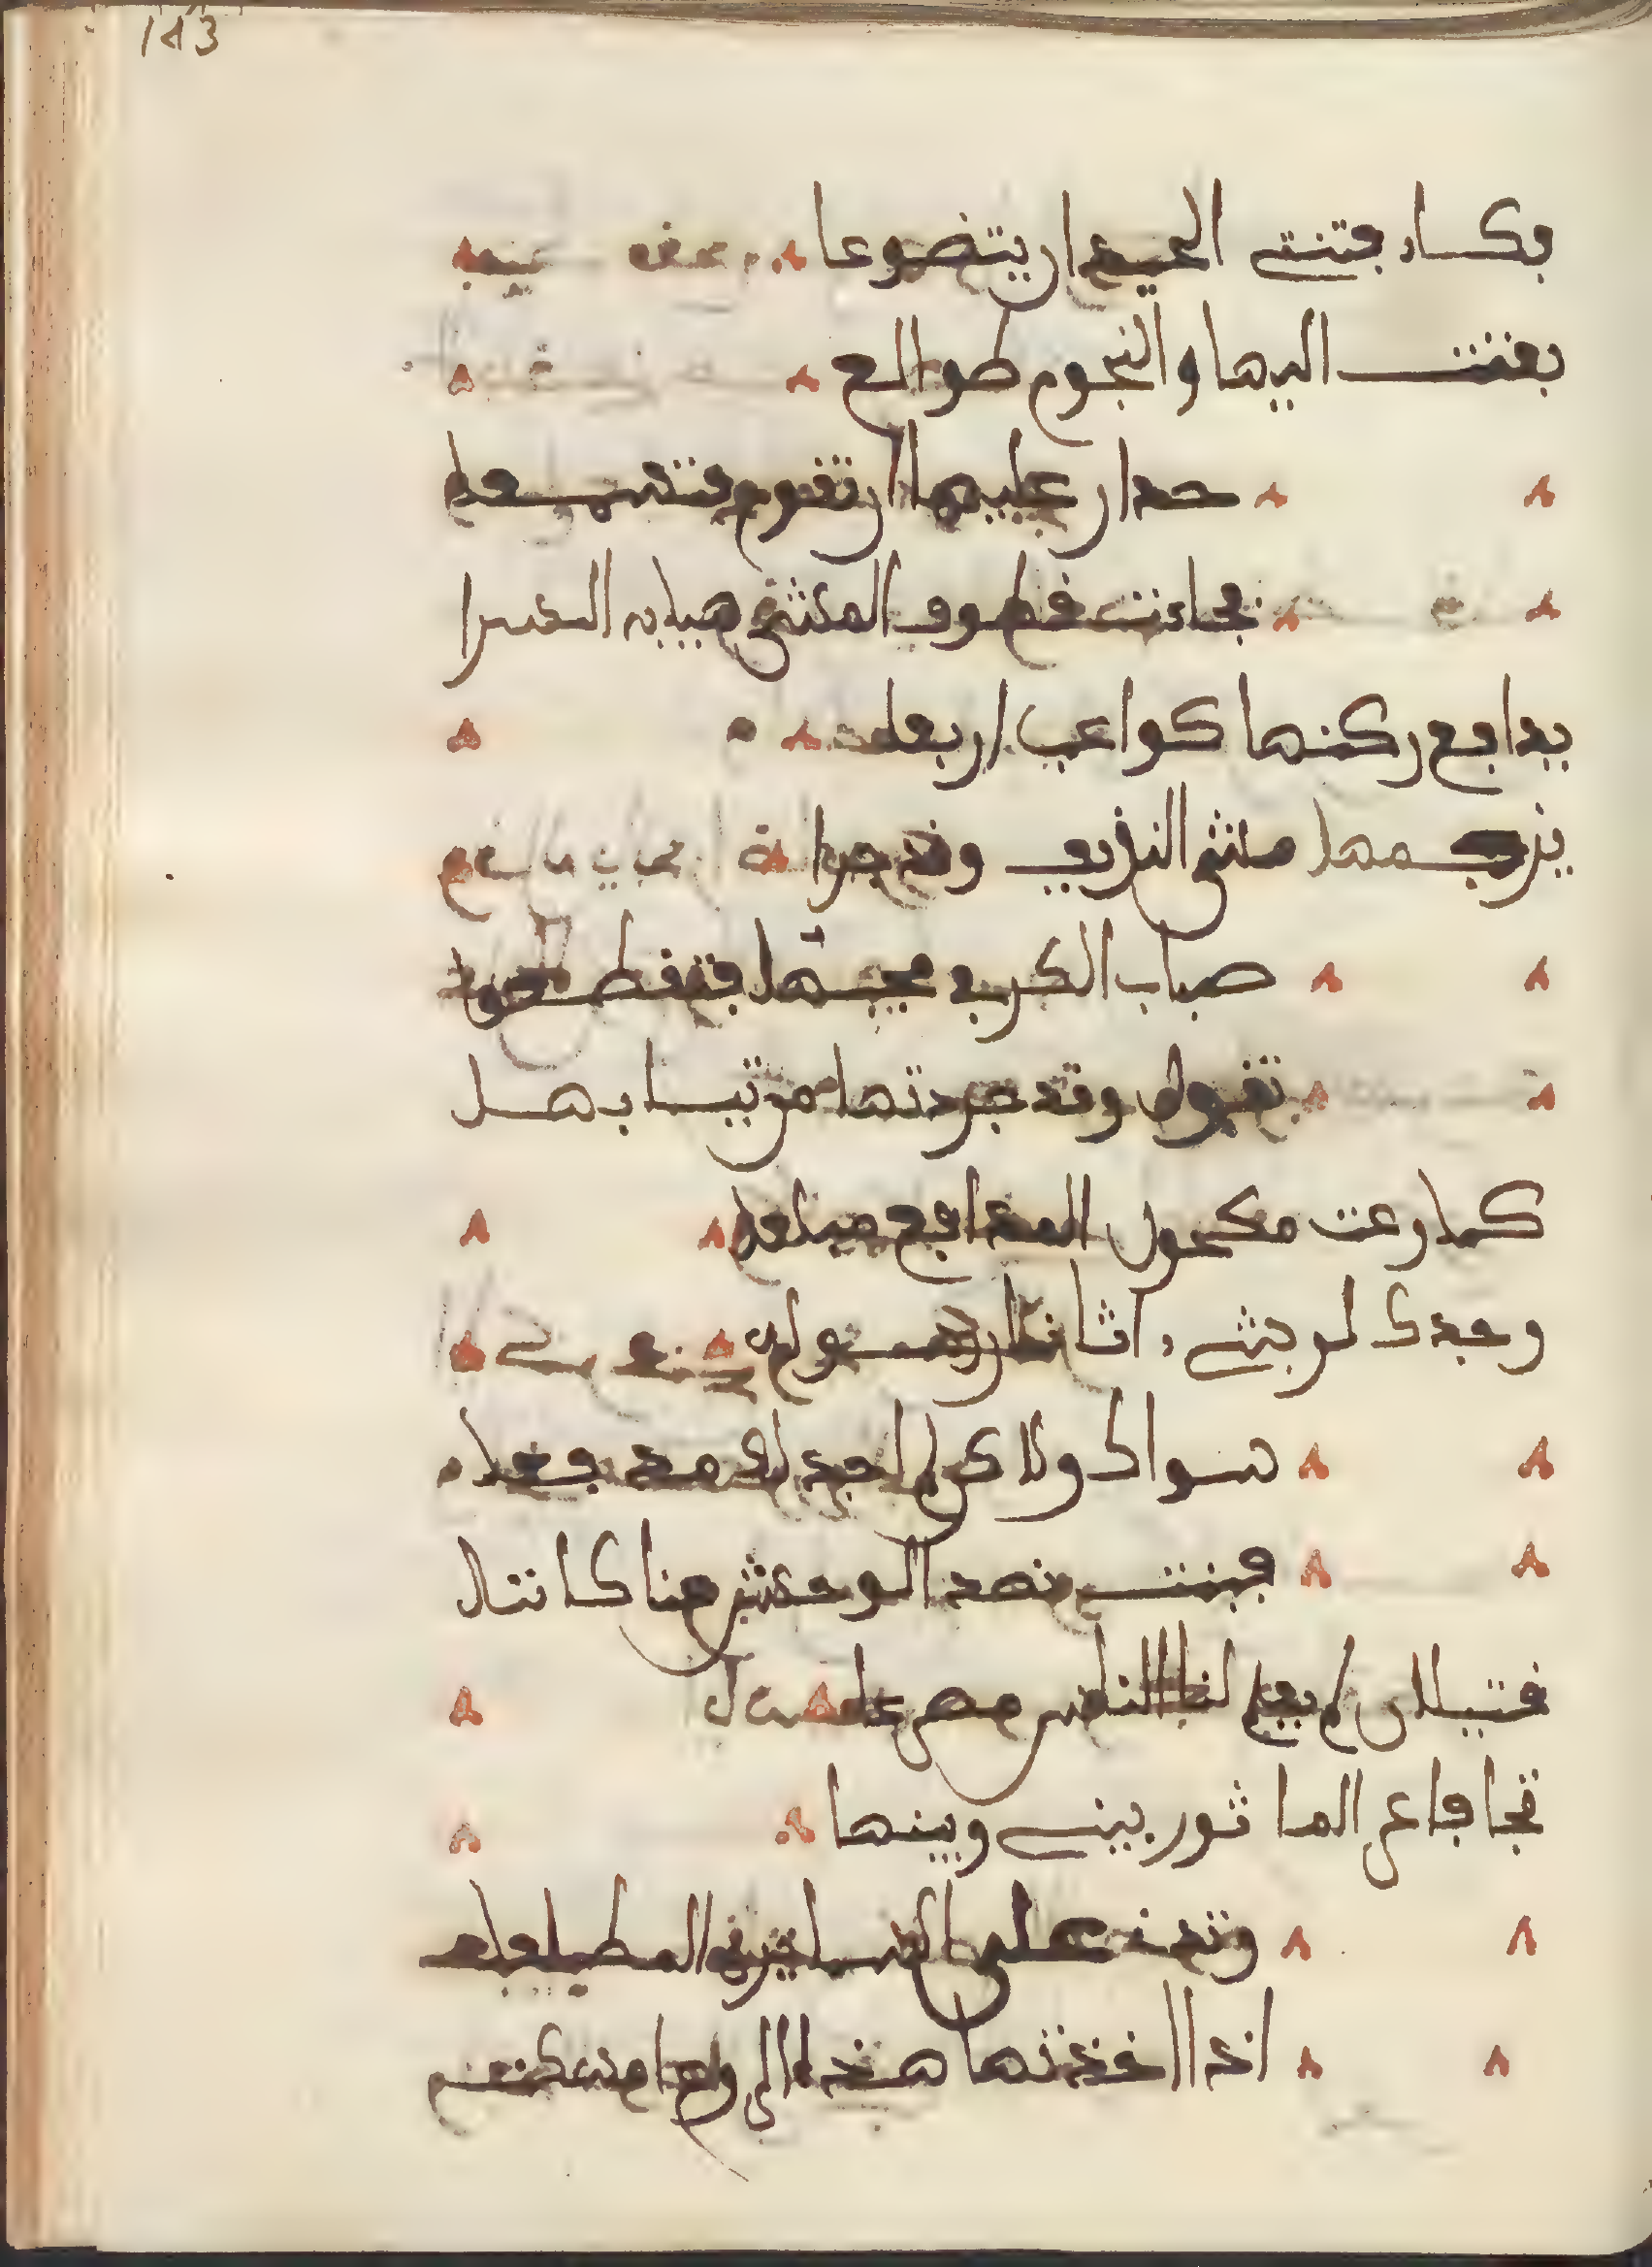 143
فكاد فتنى الحي ان يتضوعا
بعثت اليها والنجوم طوالع
حذار عليها ان تقوم فتسمعا
فجاءت قطوف المشي هيابه السرا
يدافع ركنها كواعب اربعا
يزجمها مشي النزيف وقد جرا
صباب الكرى مخها فتقطعا
تقول وقد جردتها من ثيابها
كما رعت مكحول المدامع
وجدك لو شيء اتانا رسوله
سواك ولاكن لم نجد لك مدفعا
فبتنا نصد الوحش عنا كاننا
قتيلان لم يعلم لنا الناس مصرعا
تجافا عن الماثور بيني وبينها
وتدني على السابري المضلعا
اذا اخذتها هزة